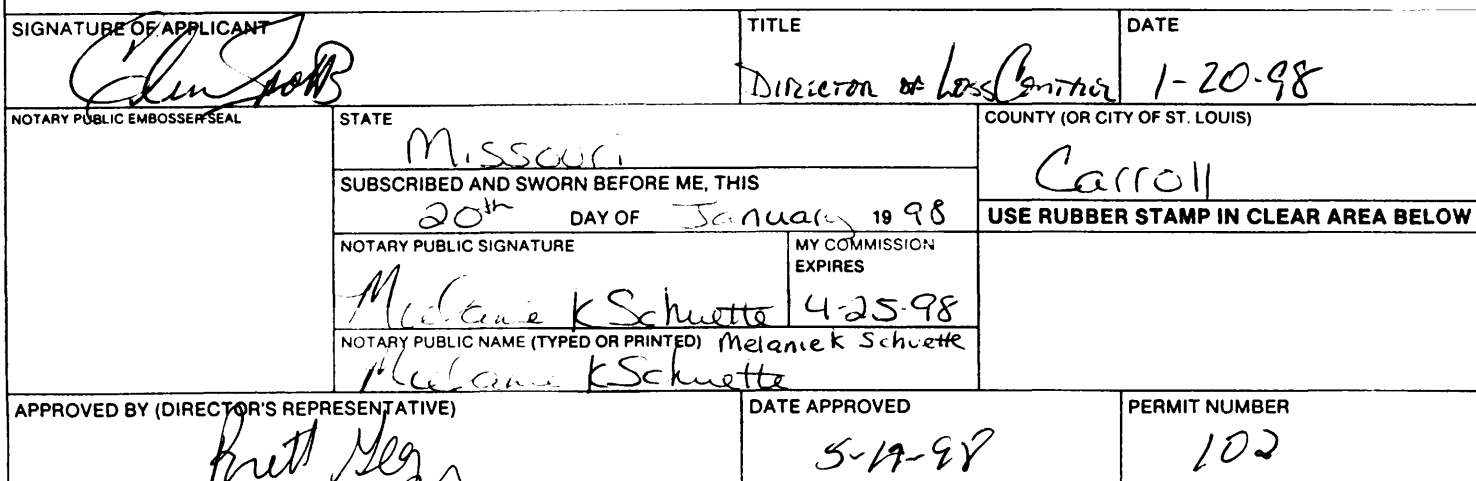 SIGNATURE OF APPLICANT
TITLE
DATE
Director of Loss Control
1-20-98
NOTARY PUBLIC EMBOSSER SEAL
STATE
Missouri
COUNTY (OR CITY OF ST. LOUIS)
Carroll
SUBSCRIBED AND SWORN BEFORE ME, THIS
20th DAY OF January 19 98
USE RUBBER STAMP IN CLEAR AREA BELOW
NOTARY PUBLIC SIGNATURE
Melanie K Schuette
MY COMMISSION
EXPIRES
4-25-98
NOTARY PUBLIC NAME (TYPED OR PRINTED) Melanie K Schuette
Melanie K Schuette
APPROVED BY (DIRECTOR'S REPRESENTATIVE)
Brett
DATE APPROVED
PERMIT NUMBER
102